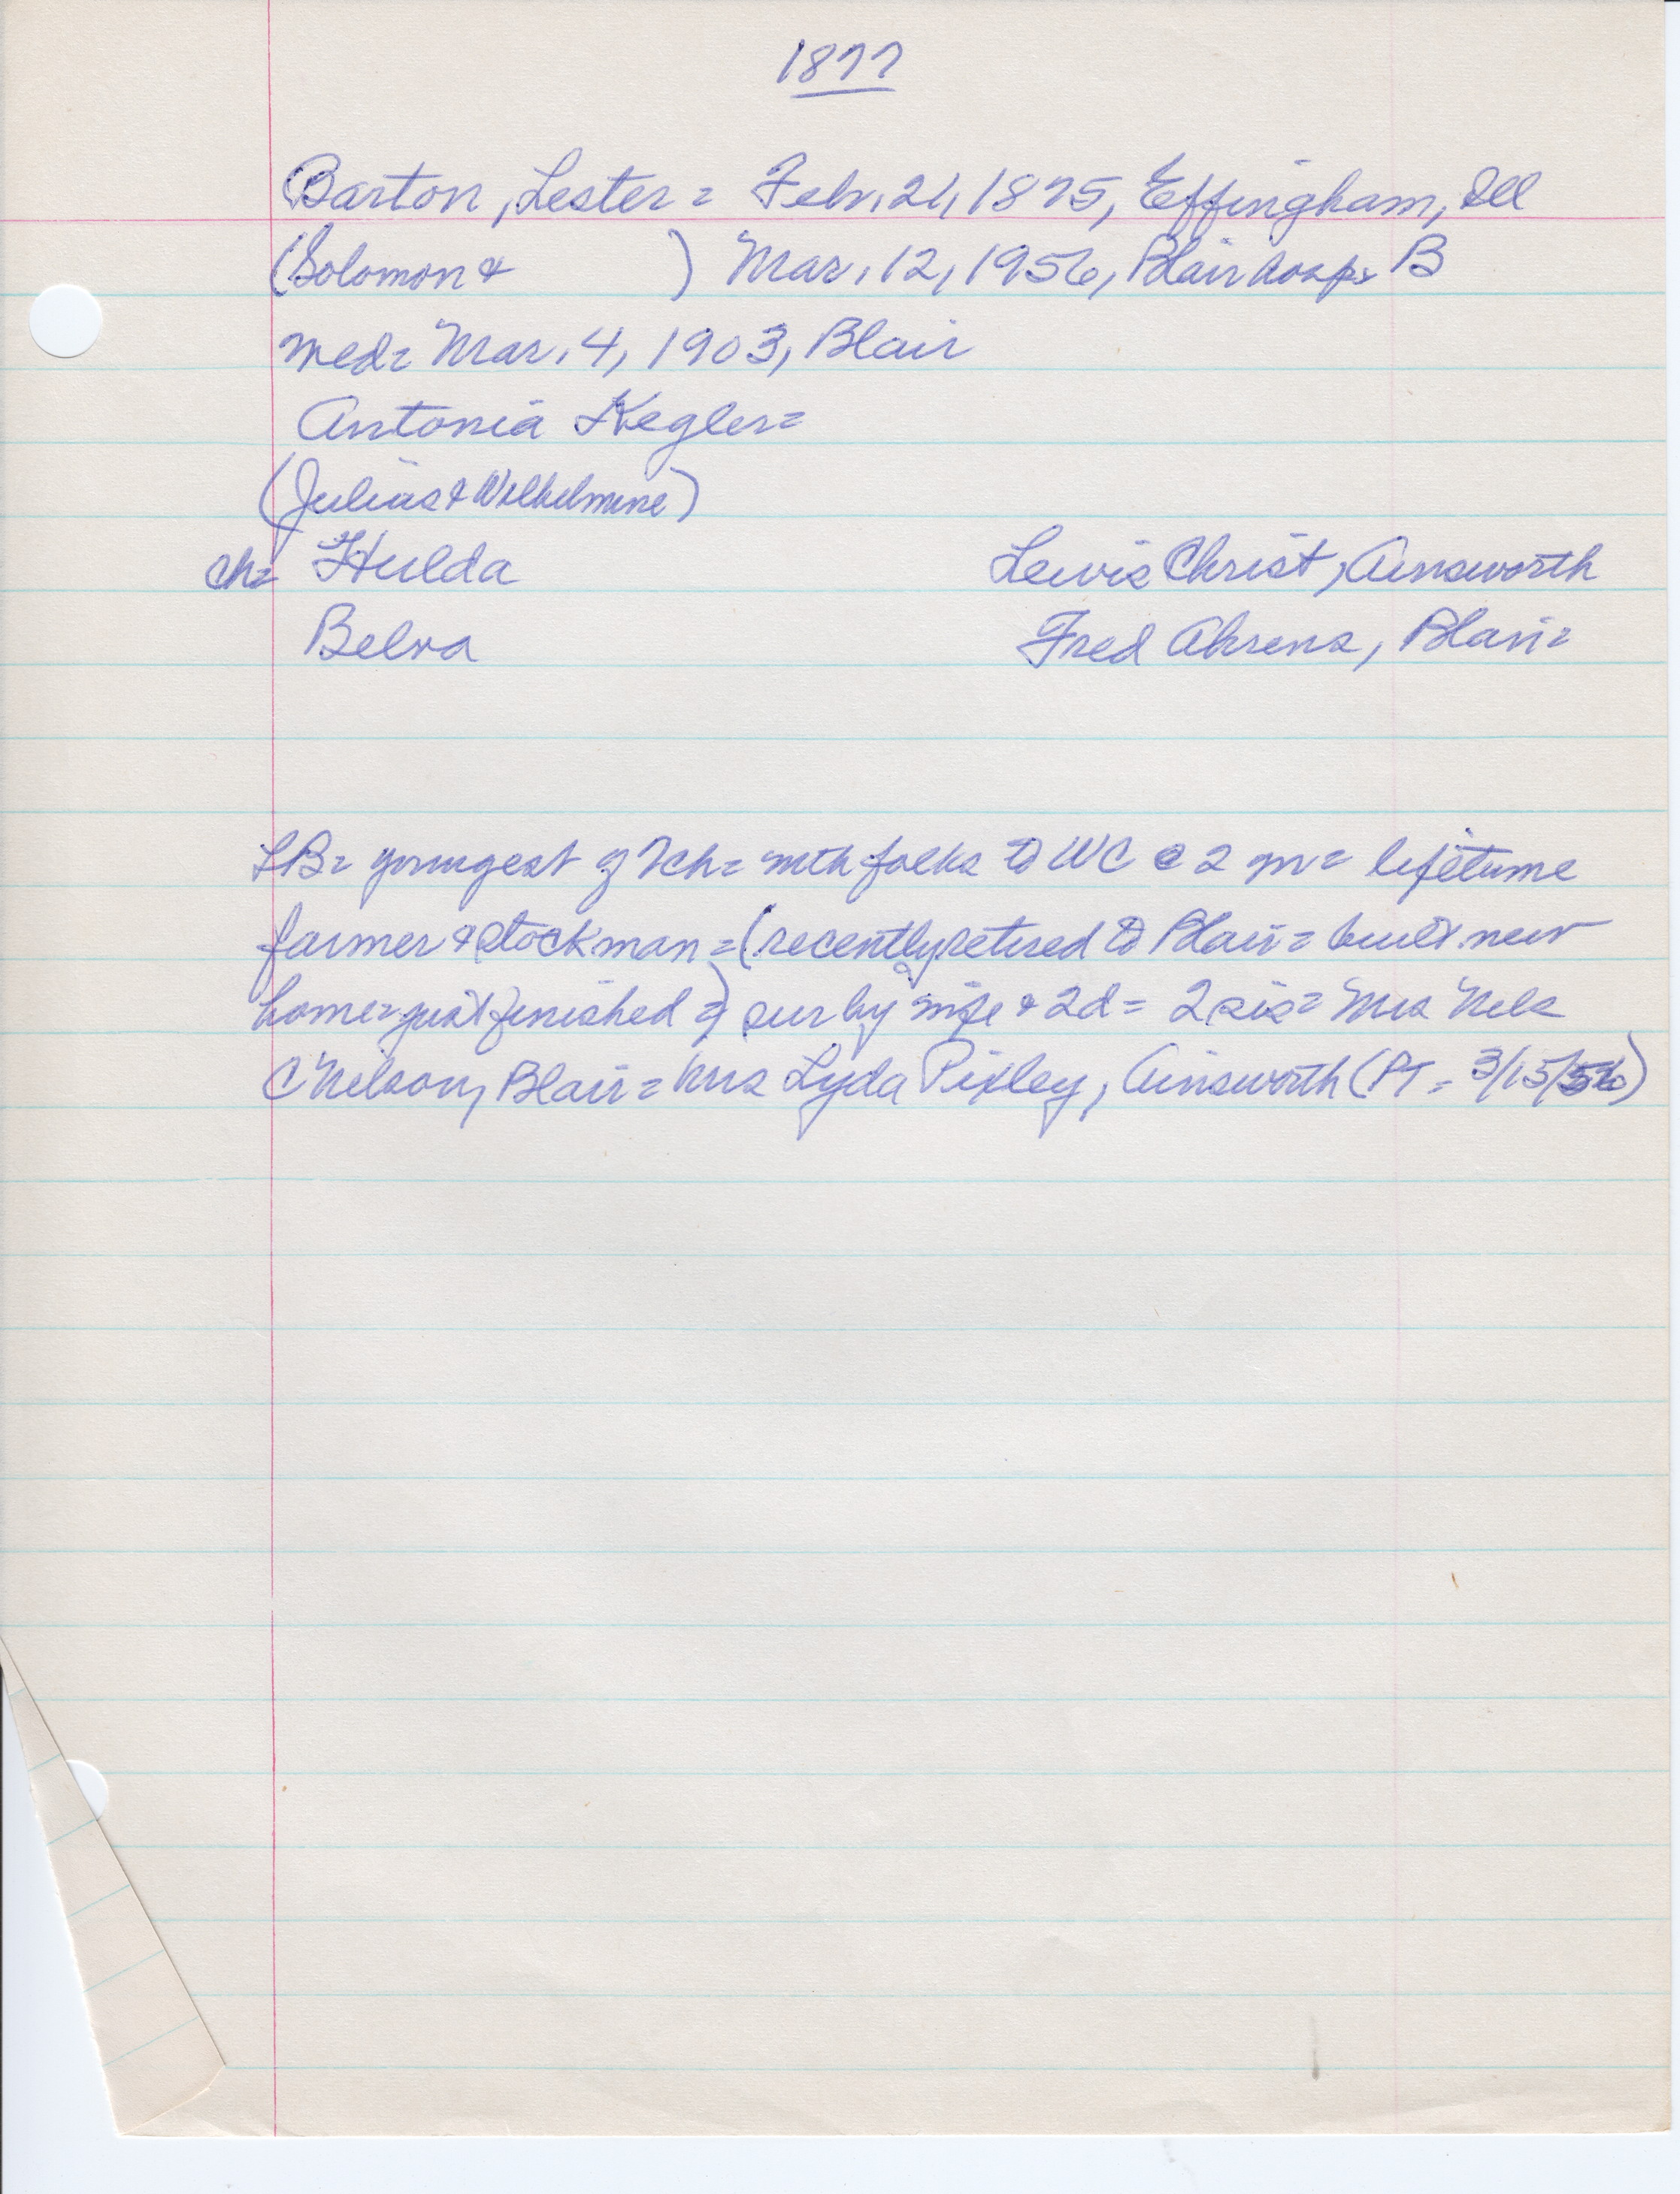 1877
Barton, Lester = Feb. 21, 1875, Effingham, Ill
(Solomon & ) Mar. 12, 1956, Blair hosp = B
med = Mar. 4, 1903, Blair
Antonia Kegler =
(Julius & Wilhelmine)
ch = Hulda Lewis Christ, Ainsworth
Belva Fred Ahrens, Blair =
LB = youngest of 7 ch = with folks to WC @ 2 m = lifetime
farmer & stockman = (recently retired to Blair = built new
home = just finished =) sur by wife & 2d = 2 sis = Mrs Nels
C Nelson, Blair = Mrs Lyda Pixley, Ainsworth (PT = 3/15/56)